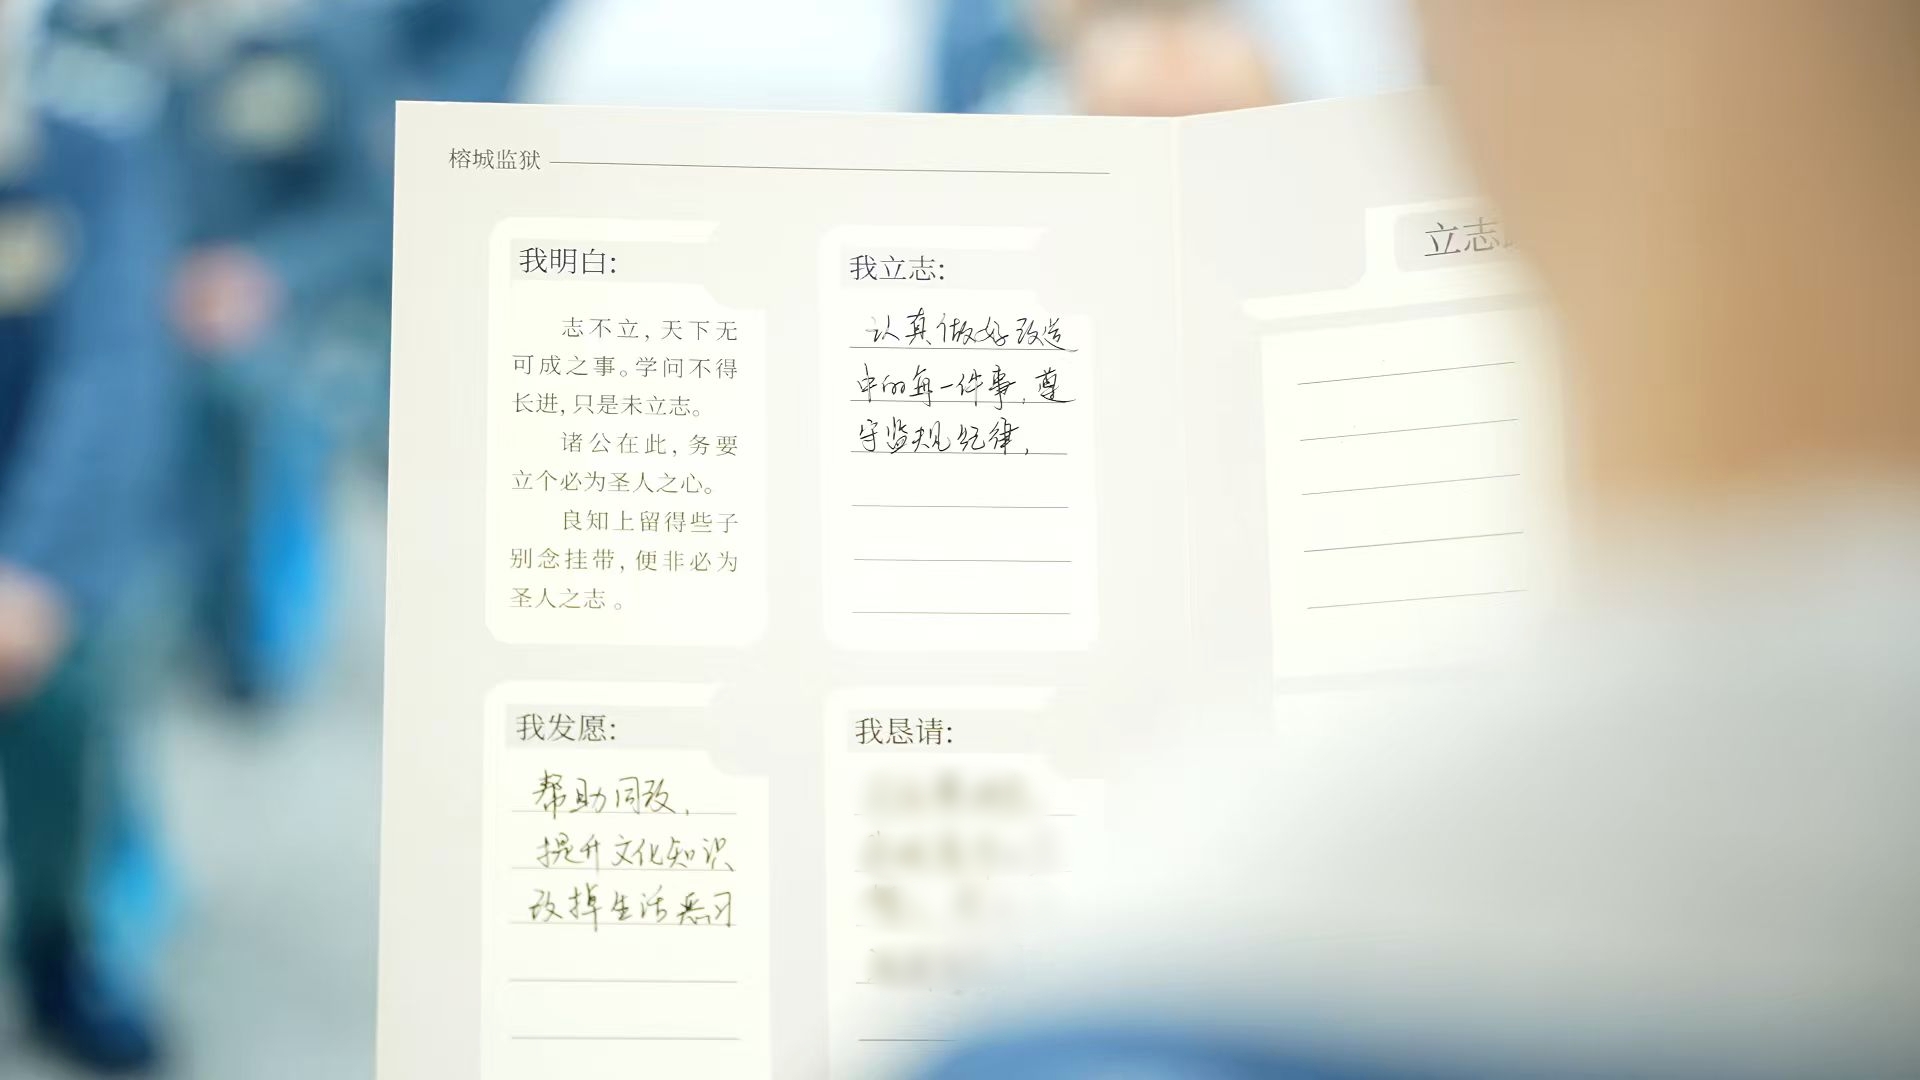 榕城监狱
我明白:
志不立，天下无
可成之事。学问不得
长进，只是未立志。
诸公在此，务要
立个必为圣人之心。
良知上留得些子
别念挂带，便非必为
圣人之志。
我立志:
认真做好改造
中的每一件事，遵
守监规纪律，
我发愿:
帮助同改，
提升文化知识
改掉生活恶习
我恳请:
立志